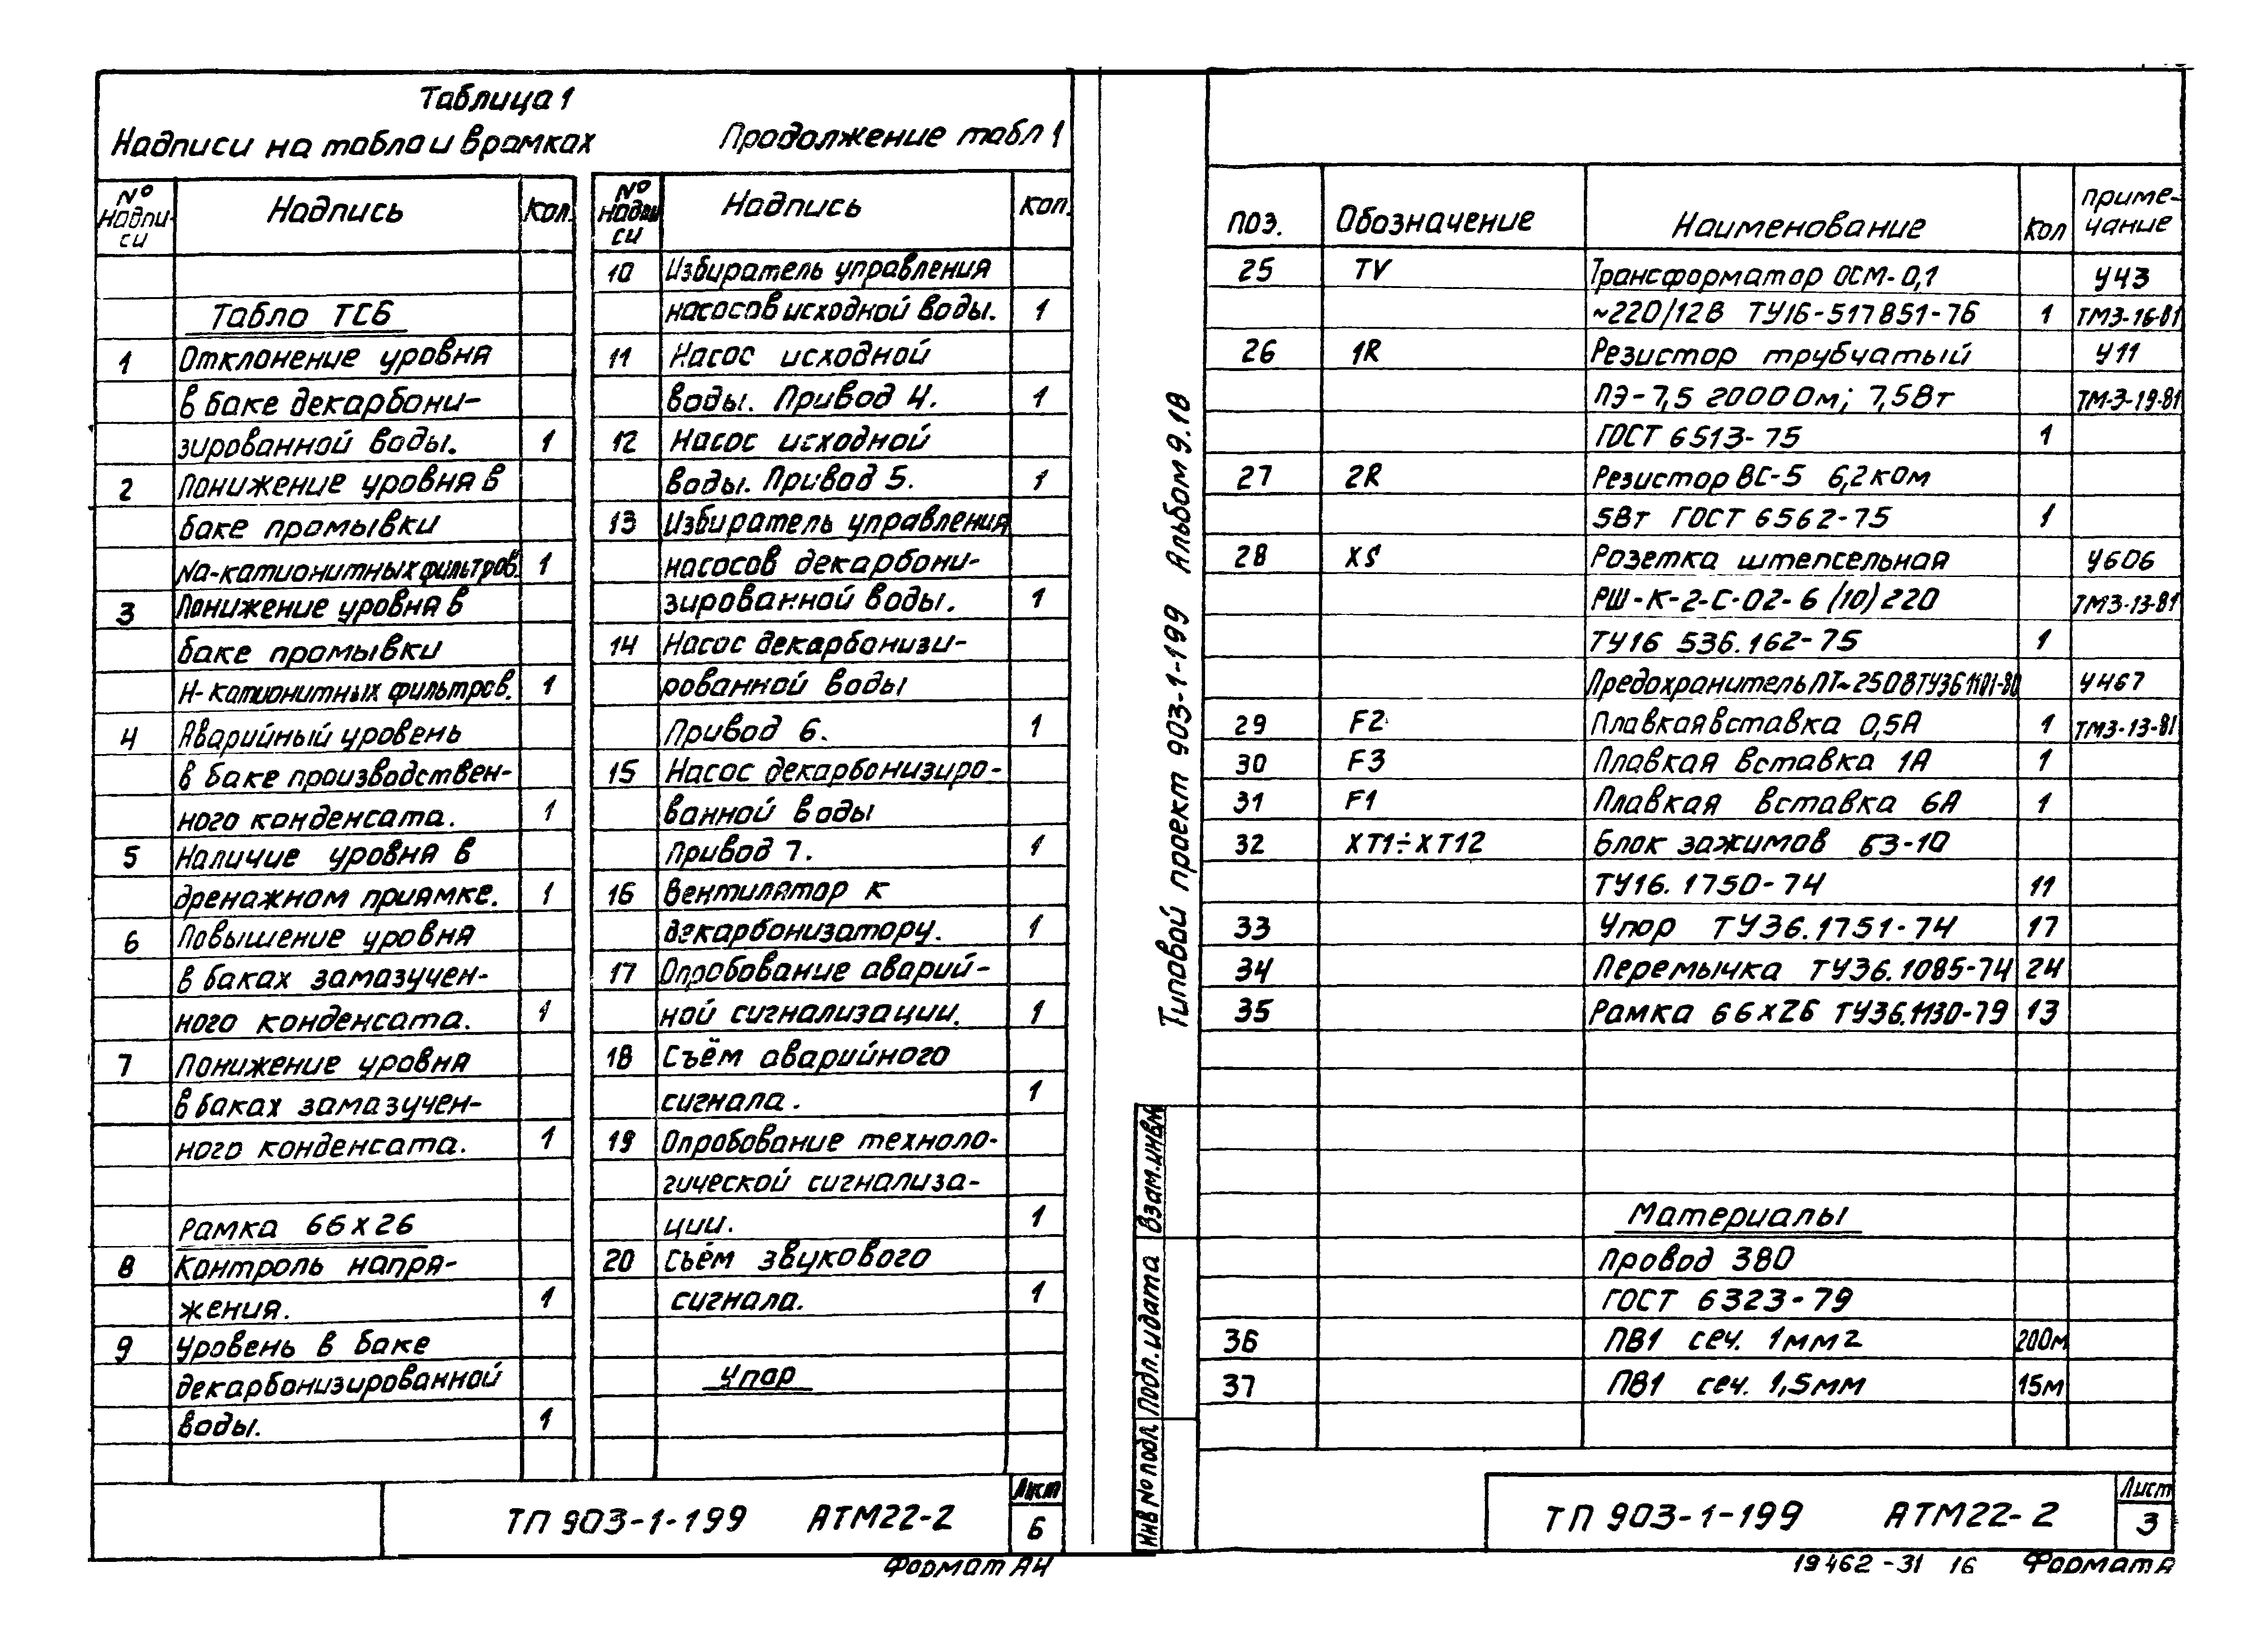 Таблица 1
Надписи на табло и в рамках
Продолжение табл 1
№ надпи-си Надпись Кол.
Табло ТСБ
1 Отклонение уровня
в баке декарбони-
зированной воды. 1
2 Понижение уровня в
баке промывки
Na-катионитных фильтров. 1
3 Понижение уровня в
баке промывки
Н-катионитных фильтров. 1
4 Аварийный уровень
в баке производствен-
ного конденсата. 1
5 Наличие уровня в
дренажном приямке. 1
6 Повышение уровня
в баках замазучен-
ного конденсата. 1
7 Понижение уровня
в баках замазучен-
ного конденсата. 1
Рамка 66х26
8 Контроль напря-
жения. 1
9 Уровень в баке
декарбонизированной
воды. 1
№ надпи си Надпись Кол.
10 Избиратель управления
насосов исходной воды. 1
11 Насос исходной
воды. Привод 4. 1
12 Насос исходной
воды. Привод 5. 1
13 Избиратель управления
насосов декарбони-
зированной воды. 1
14 Насос декарбонизи-
рованной воды
Привод 6. 1
15 Насос декарбонизиро-
ванной воды
Привод 7. 1
16 Вентилятор к
декарбонизатору. 1
17 Опробование аварий-
ной сигнализации. 1
18 Съём аварийного
сигнала. 1
19 Опробование техноло-
гической сигнализа-
ции. 1
20 Съём звукового
сигнала. 1
Упор
ТП 903-1-199 АТМ22-2
Лист
6
Формат А4
Типовой проект 903-1-199 Альбом 9.18
Взам.инв.№
Подп. и дата
Инв № подл.
Поз. Обозначение Наименование Кол Приме-чание
25 TV Трансформатор ОСМ-0,1 У43
~220/12В ТУ16-517851-76 1 ТМ3-16-81
26 1R Резистор трубчатый У11
ПЭ-7,5 2000 Ом; 7,5Вт ТМ-3-19-81
ГОСТ 6513-75 1
27 2R Резистор ВС-5 6,2 ком
5Вт ГОСТ 6562-75 1
28 XS Розетка штепсельная У606
РШ-К-2-С-02-6/10/220 ТМ3-13-81
ТУ16 536.162-75 1
Предохранитель ПТ~250ВТУ36 1101-80 У467
29 F2 Плавкая вставка 0,5А 1 ТМ3-13-81
30 F3 Плавкая вставка 1А 1
31 F1 Плавкая вставка 6А 1
32 XT1÷XT12 Блок зажимов БЗ-10
ТУ16.1750-74 11
33 Упор ТУ36.1751-74 17
34 Перемычка ТУ36.1085-74 24
35 Рамка 66х26 ТУ36.1130-79 13
Материалы
Провод 380
ГОСТ 6323-79
36 ПВ1 сеч. 1мм2 200м
37 ПВ1 сеч. 1,5мм 15м
ТП 903-1-199 АТМ22-2
Лист
3
19462-31 16 Формат А